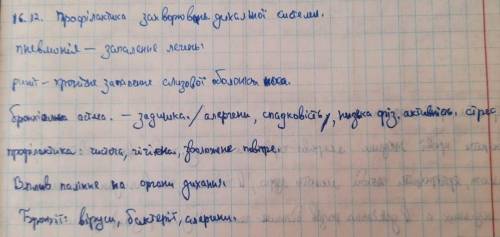 16.12. Профілактика захворювань дихальної системи.
пневмонія – запалення легень:
риніт – хронічне запалення слизової оболонки носа.
бронхіальна астма. – задишка. / алергени, спадковість /, низька фіз. активність. стрес
профілактика: чистота, гігієна, зволожене повітря.
Вплив паління на органи дихання.
Бронхіт: віруси, бактерії, алергени.